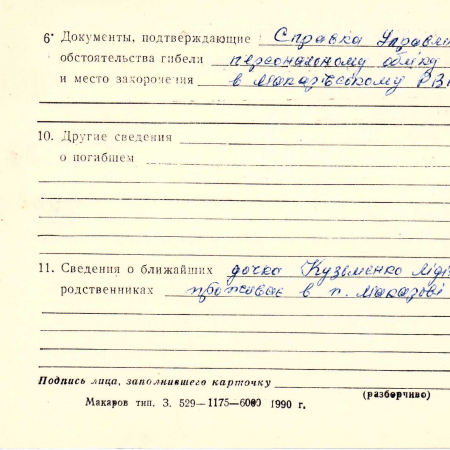 6· Документы, подтверждающие Справка Управлін
обстоятельства гибели персональному обліку
и место захоронения в Макарівському РВК
10. Другие сведения
о погибшем
11. Сведения о ближайших дочка Кузьменко Ліді
родственниках проживає в п. Макарові
Подпись лица, заполнившего карточку
(разборчиво)
Макаров тип. З. 529—1175—6000 1990 г.